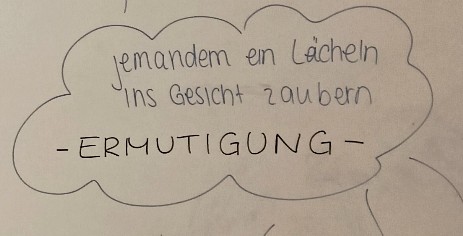 jemandem ein Lächeln
ins Gesicht zaubern
- ERMUTIGUNG -